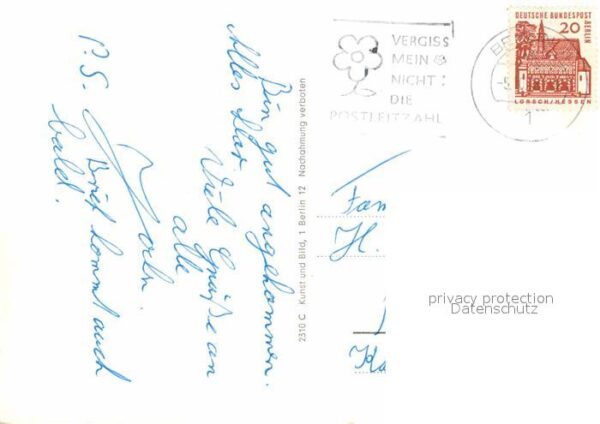 Bin gut angekommen.
Alles klar.
Viele Grüße an
alle
Joch.
P.S.
Brief kommt auch
bald!
2310 C Kunst und Bild, 1 Berlin 12 Nachahmung verboten
VERGISS
MEIN
NICHT
DIE
POSTLEITZAHL
DEUTSCHE BUNDESPOST
BERLIN
20
LORSCH/HESSEN
1
Fam
H.
privacy protection
Datenschutz